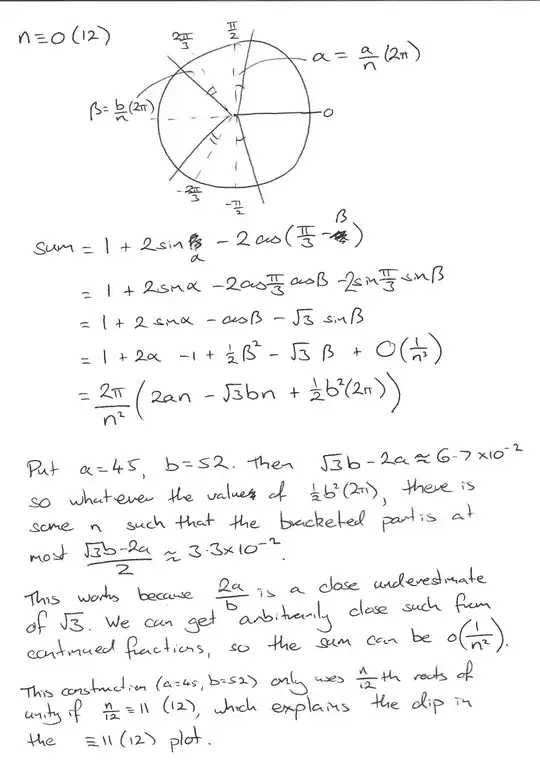 n≡0(12)
2π/3
π/2
α = a/n (2π)
β = b/n (2π)
0
-2π/3
-π/2
Sum = 1 + 2sin α - 2cos(π/3 - β)
= 1 + 2sinα - 2cos π/3 cosβ - 2sin π/3 sinβ
= 1 + 2 sinα - cosβ - √3 sinβ
= 1 + 2α - 1 + ½β² - √3 β + O(1/n³)
= 2π/n² (2an - √3bn + ½b²(2π))
Put a=45, b=52. Then √3b-2a ≈ 6.7×10⁻²
so whatever the values of ½b²(2π), there is
some n such that the bracketed part is at
most (√3b-2a)/2 ≈ 3.3×10⁻².
This works because 2a/b is a close underestimate
of √3. We can get arbitrarily close such from
continued fractions, so the sum can be o(1/n²).
This construction (a=45, b=52) only uses n/12 th roots of
unity if n/12 ≡ 11 (12), which explains the dip in
the ≡11(12) plot.